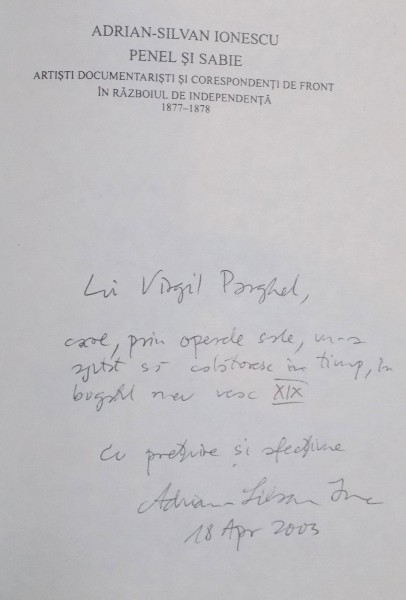 ADRIAN-SILVAN IONESCU
PENEL ȘI SABIE
ARTIȘTI DOCUMENTARIȘTI ȘI CORESPONDENȚI DE FRONT
ÎN RĂZBOIUL DE INDEPENDENȚĂ
1877–1878
Lui Virgil Parghel,
care, prin operele sale, m-a
ajutat să călătoresc în timp, în
bogatul meu veac XIX
Cu prețuire și afecțiune
Adrian Silvan Ionescu
18 Apr 2003